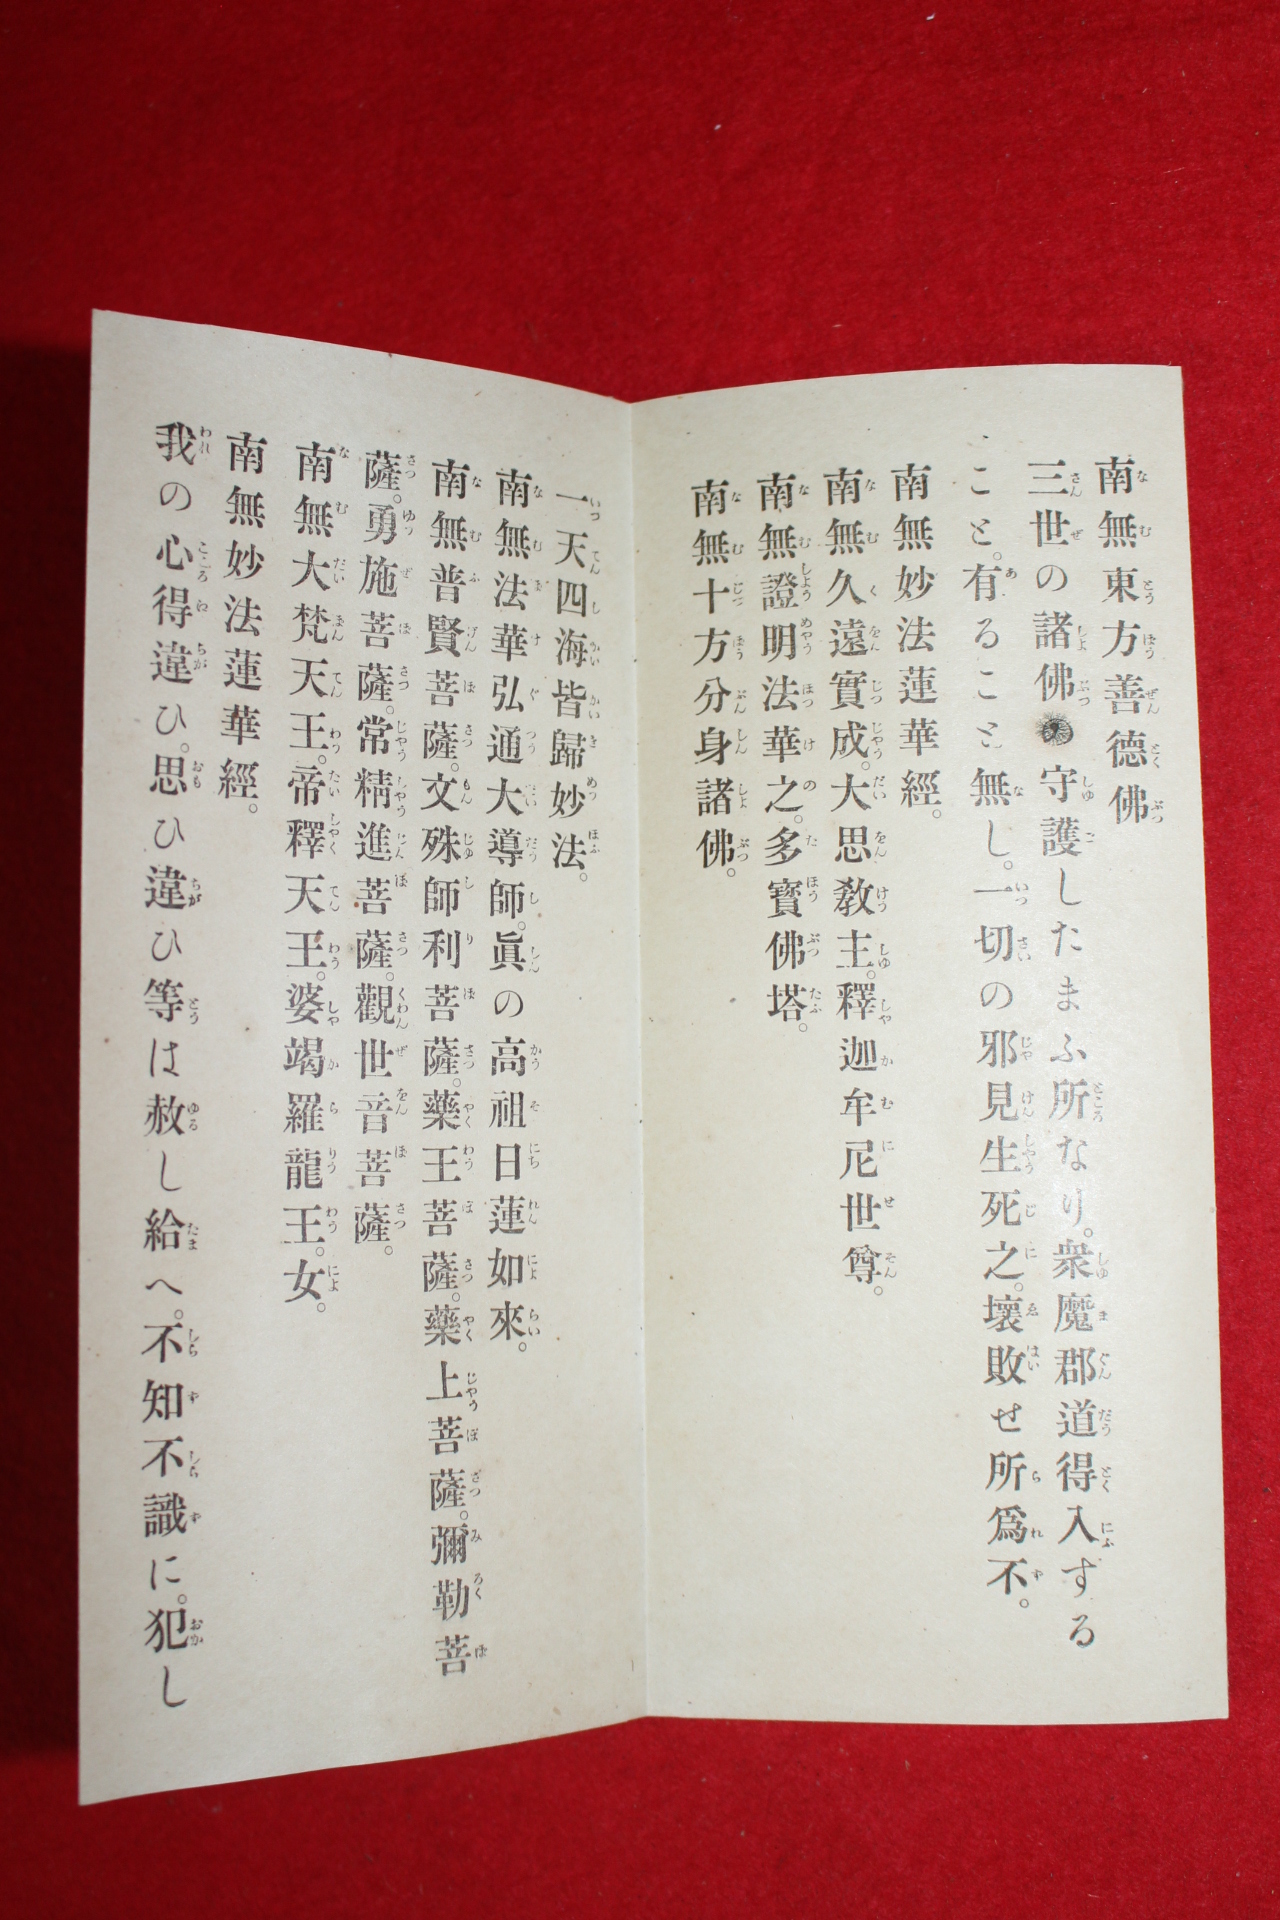 南無東方善德佛
三世の諸佛守護したまふ所なり。衆魔郡道得入ずる
こと。有ること無し。一切の邪見生死之。壞敗せ所爲不。
南無妙法蓮華經。
南無久遠實成。大恩敎主。釋迦牟尼世尊。
南無證明法華之。多寶佛塔。
南無十方分身諸佛。
一天四海皆歸妙法。
南無法華弘通大導師。眞の高祖日蓮如來。
南無普賢菩薩。文殊師利菩薩。藥王菩薩。藥上菩薩。彌勒菩
薩。勇施菩薩。常精進菩薩。觀世音菩薩。
南無大梵天王。帝釋天王。婆竭羅龍王。女。
南無妙法蓮華經。
我の心得違ひ。思ひ違ひ等は赦し給へ。不知不識に。犯し